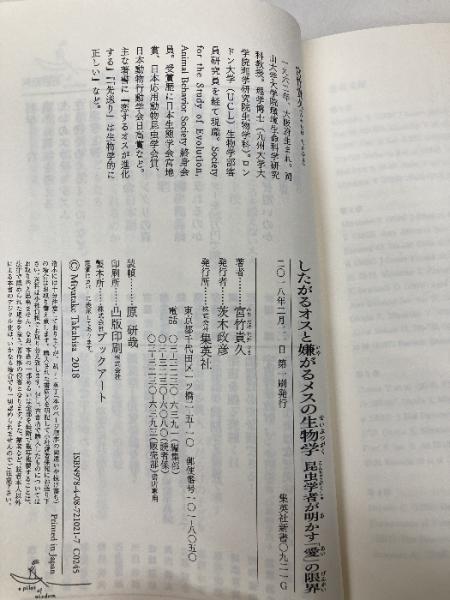 宮竹貴久
一九六二年、大阪府生まれ。岡
山大学大学院環境生命科学研究
科教授。理学博士(九州大学大
学院理学研究院生物学科)。ロン
ドン大学(UCL)生物学部客
員研究員を経て現職。Society
for the Study of Evolution,
Animal Behavior Society 終身会
員。受賞歴に日本生態学会宮地
賞、日本応用動物昆虫学会賞、
日本動物行動学会日高賞など。
主な著書に『恋するオスが進化
する』『「先送り」は生物学的に
正しい』など。
したがるオスと嫌がるメスの生物学 昆虫学者が明かす「愛」の限界
二〇一八年二月 日 第一刷発行
集英社新書〇九二一G
著者……宮竹貴久
発行者……茨木政彦
発行所……株式会社集英社
東京都千代田区一ツ橋二-五-一〇 郵便番号一〇一-八〇五〇
電話 〇三-三二三〇-六三九一(編集部)
〇三-三二三〇-六〇八〇(読者係)
〇三-三二三〇-六三九三(販売部)書店専用
装幀……原 研哉
印刷所……凸版印刷株式会社
製本所……株式会社ブックアート
定価はカバーに表示してあります。
© Miyatake Takahisa 2018
ISBN978-4-08-721021-7 C0245
Printed in Japan
a pilot of wisdom